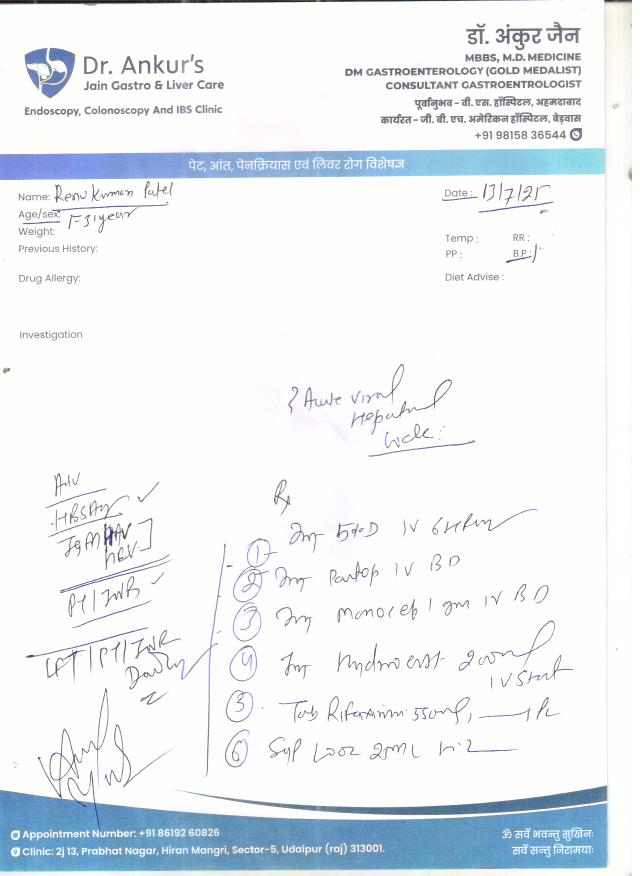 Dr. Ankur's
Jain Gastro & Liver Care
Endoscopy, Colonoscopy And IBS Clinic
डॉ. अंकुर जैन
MBBS, M.D. MEDICINE
DM GASTROENTEROLOGY (GOLD MEDALIST)
CONSULTANT GASTROENTROLOGIST
पूर्वानुभव - वी. एस. हॉस्पिटल, अहमदाबाद
कार्यरत - जी. बी. एच. अमेरिकन हॉस्पिटल, बेड़वास
+91 98158 36544
पेट, आंत, पेनक्रियास एवं लिवर रोग विशेषज्ञ
Name: Renu Kumari Patel
Date: 13/7/25
Age/sex: F-31 year
Weight:
Previous History:
Temp : RR :
PP : B.P.:
Drug Allergy:
Diet Advise :
Investigation
? Acute Viral
Hepatitis
HIV
HBSAg
IgM HAV
HEV
PT/INR
LFT/PT/INR
Daily
Rx
① Inj IV
② Inj Pantop IV BD
③ Inj Monocef 1 gm IV BD
④ Inj Hydrocort 200mg
IV Stat
⑤ Tab Rifaximin 550mg
⑥ Syp Looz 25ml
Appointment Number: +91 86192 60826
Clinic: 2j 13, Prabhat Nagar, Hiran Mangri, Sector-5, Udaipur (raj) 313001.
ॐ सर्वे भवन्तु सुखिनः
सर्वे सन्तु निरामयाः